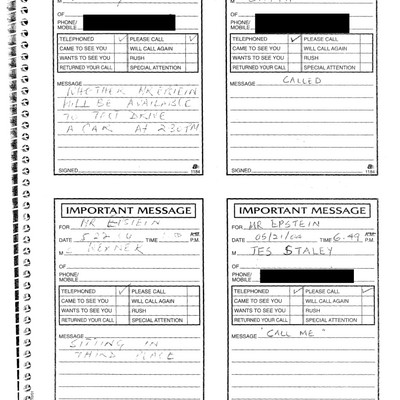 OF
PHONE/
MOBILE
TELEPHONED ✓ PLEASE CALL ✓
CAME TO SEE YOU WILL CALL AGAIN
WANTS TO SEE YOU RUSH
RETURNED YOUR CALL SPECIAL ATTENTION
MESSAGE
WILL BE AVAILABLE
TO TEST DRIVE
A CAR AT 230PM
SIGNED
1184
OF
PHONE/
MOBILE
TELEPHONED ✓ PLEASE CALL
CAME TO SEE YOU WILL CALL AGAIN
WANTS TO SEE YOU RUSH
RETURNED YOUR CALL SPECIAL ATTENTION
MESSAGE CALLED
SIGNED
1184
IMPORTANT MESSAGE
FOR MR EPSTEIN
DATE TIME P.M.
M
OF
PHONE/
MOBILE
TELEPHONED ✓ PLEASE CALL
CAME TO SEE YOU WILL CALL AGAIN
WANTS TO SEE YOU RUSH
RETURNED YOUR CALL SPECIAL ATTENTION
MESSAGE
SITTING IN
THIRD PLACE
IMPORTANT MESSAGE
FOR MR EPSTEIN
DATE 05/21/ TIME 6.49 P.M.
M JES STALEY
OF
PHONE/
MOBILE
TELEPHONED ✓ PLEASE CALL ✓
CAME TO SEE YOU WILL CALL AGAIN
WANTS TO SEE YOU RUSH
RETURNED YOUR CALL SPECIAL ATTENTION
MESSAGE "CALL ME"